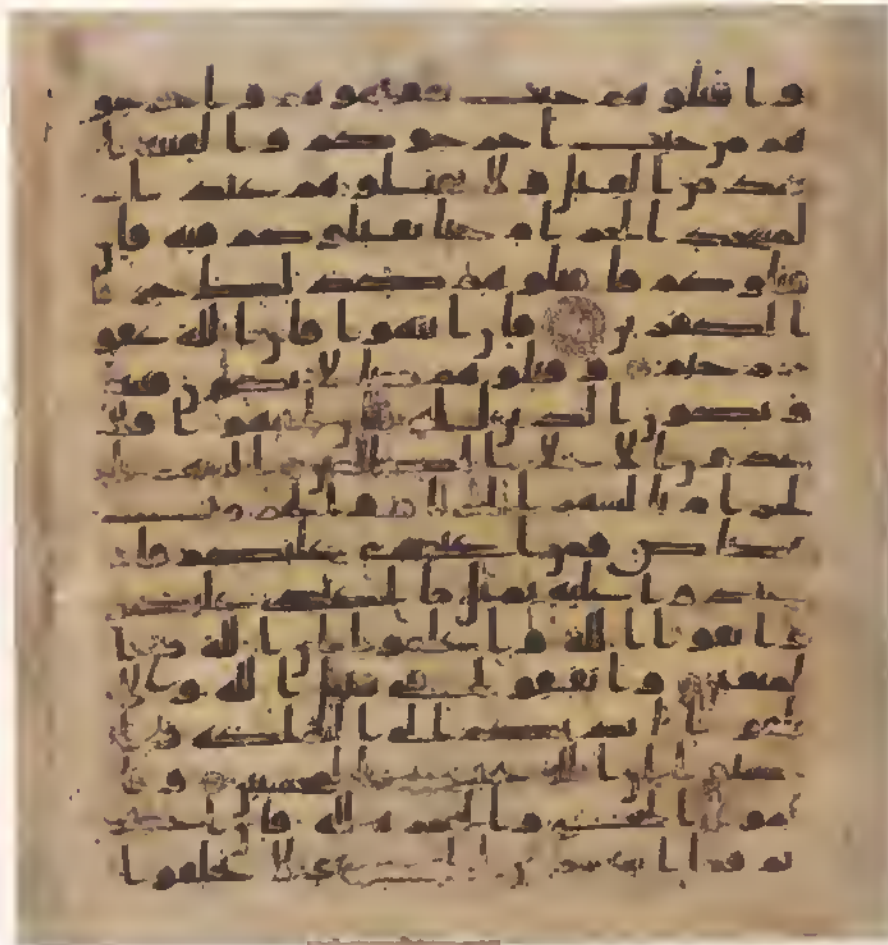 و اقتلوهم حيث ثقفتموهم و اخرجو
هم من حيث اخرجوكم و الفتنة ا
شد من القتل و لا تقتلوهم عند ا
لمسجد الحرام حتى يقتلوكم فيه فان
قتلوكم فاقتلوهم كذلك جزا
الكفرين فان انتهوا فان الله غفو
ر رحيم و قتلوهم حتى لا تكون فتنة
و يكون الدين لله فان انتهوا فلا
عدون الا على الظلمين الشهر ا
لحرام بالشهر الحرام و الحرمت
قصاص فمن اعتدى عليكم فا
عتدوا عليه بمثل ما اعتدى عليكم
و اتقوا الله و اعلموا ان الله مع ا
لمتقين و انفقوا في سبيل الله و لا
تلقوا بايديكم الى التهلكة و ا
حسنوا ان الله يحب المحسنين و ا
تموا الحج و العمرة لله فان احصر
تم فما استيسر من الهدي و لا تحلقوا